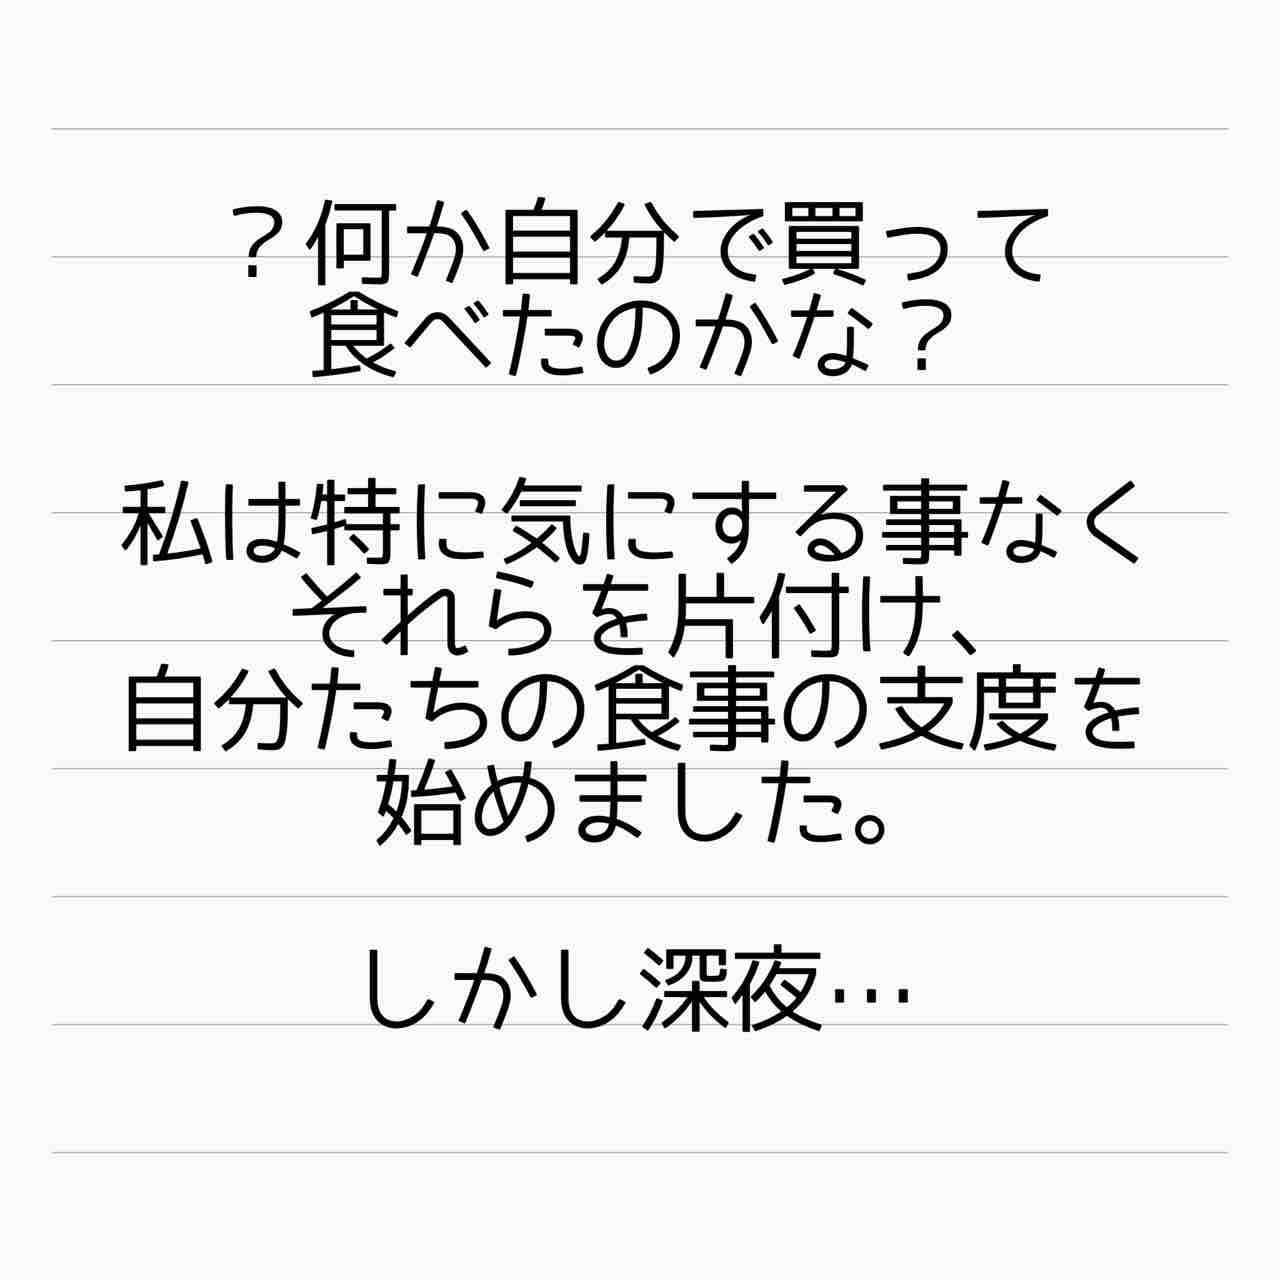 ？何か自分で買って
食べたのかな？
私は特に気にする事なく
それらを片付け、
自分たちの食事の支度を
始めました。
しかし深夜…